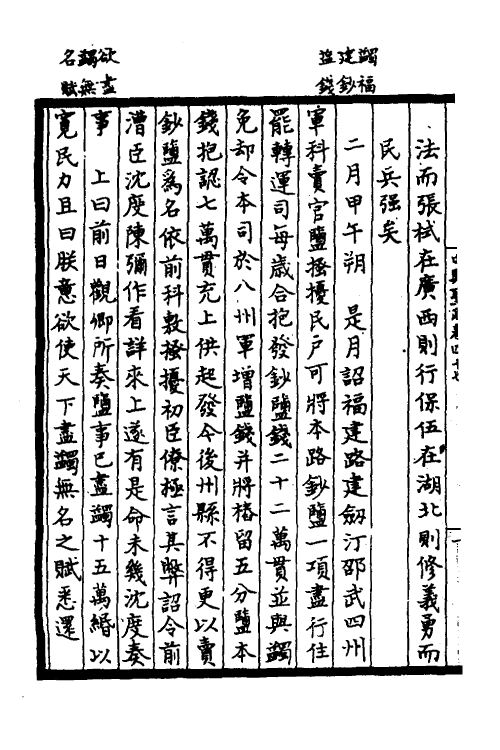 蠲福
建鈔
塩錢
欲盡
蠲無
名賦
法而張栻在廣西則行保伍在湖北則修義勇而
民兵强矣
二月甲午朔　是月詔福建路建劔汀邵武四州
軍科賣官鹽搔擾民户可將本路鈔鹽一項盡行住
罷轉運司每歲合抱發鈔鹽錢二十二萬貫並與蠲
免却令本司於八州軍增鹽錢并將樁留五分鹽本
錢抱認七萬貫充上供起發今後州縣不得更以賣
鈔鹽爲名依前科敷搔擾初臣僚極言其弊詔令前
漕臣沈度陳彌作看詳來上遂有是命未幾沈度奏
事　上曰前日觀卿所奏鹽事已盡蠲十五萬緡以
寛民力且曰朕意欲使天下盡蠲無名之賦悉還